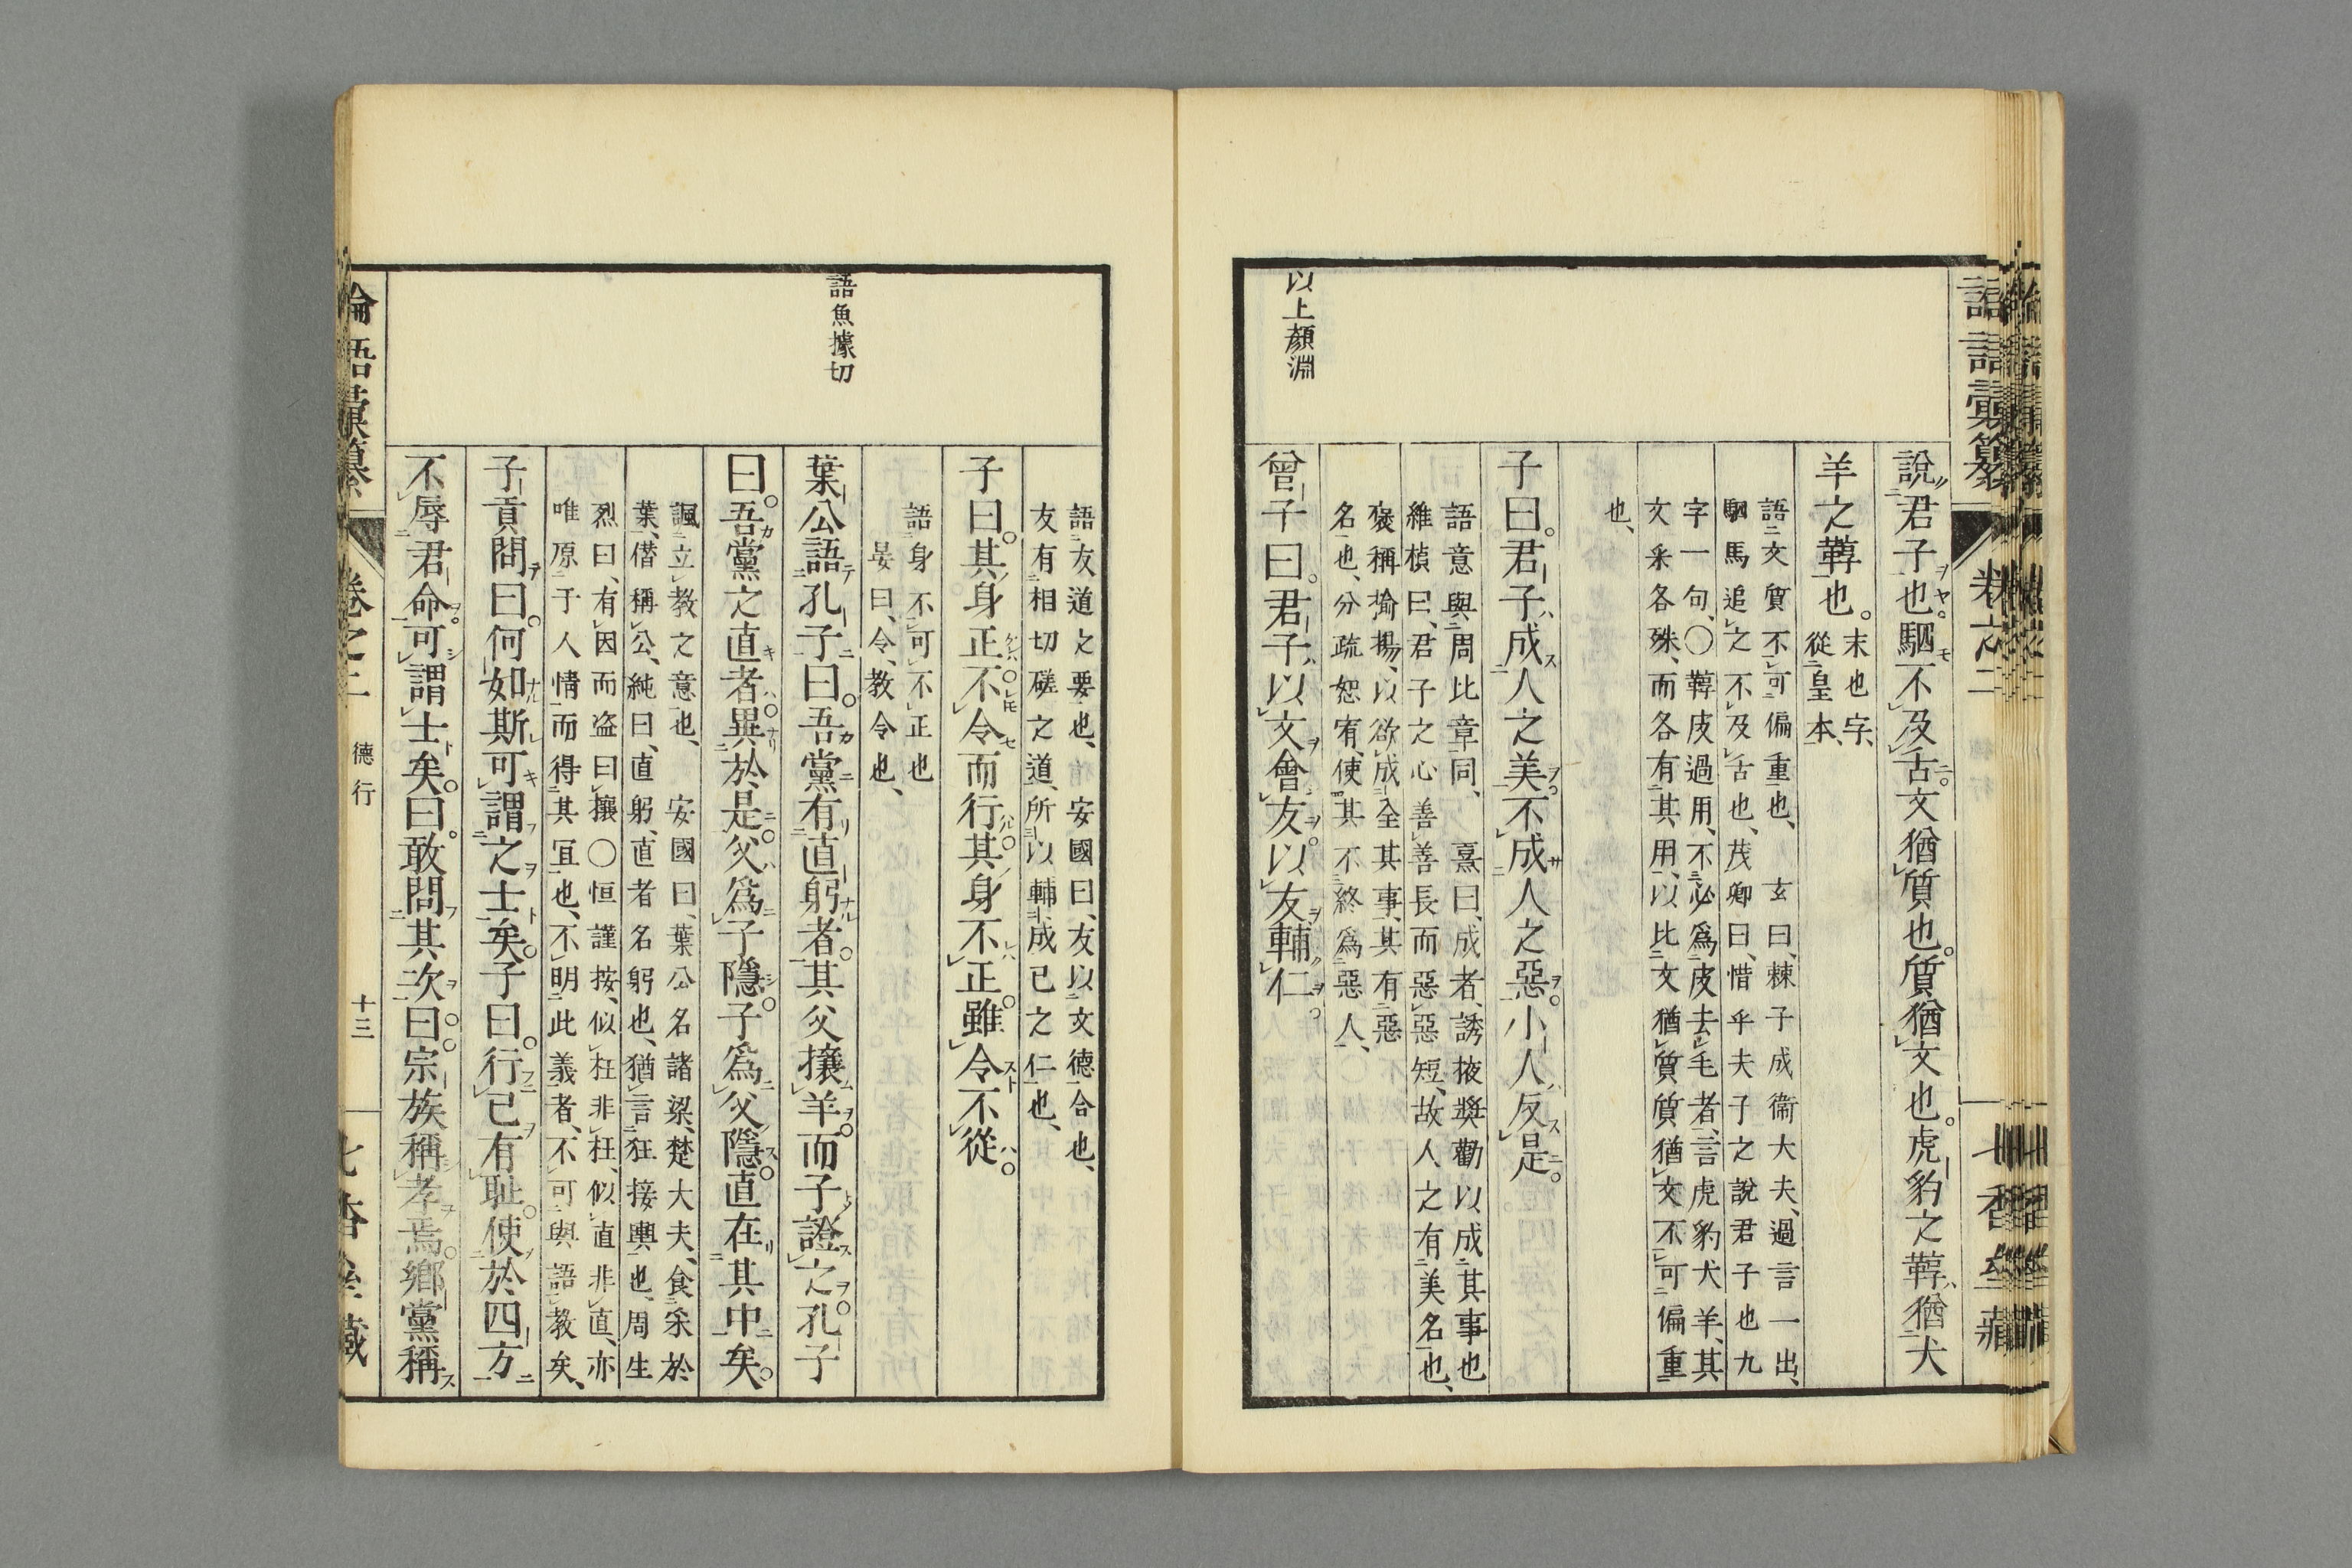 以上顏淵
說君子也。駟不及舌。文猶質也。質猶文也。虎豹之鞟猶犬
羊之鞟也。
末也字、
從皇本、
語文質不可偏重也、玄曰、棘子成衞大夫、過言一出、
駟馬追之不及舌也、茂卿曰、惜乎夫子之說君子也九
字一句、〇鞟皮過用、不必爲皮去毛者、言虎豹犬羊、其
文采各殊、而各有其用、以比文猶質質猶文不可偏重
也、
子曰。君子成人之美。不成人之惡。小人反是。
語意與周比章同、熹曰、成者、誘掖奬勸以成其事也
維楨曰、君子之心善善長而惡惡短、故人之有美名也、
襃稱揄揚、以欲成全其事、其有惡
名也、分疏恕宥、使其不終爲惡人、
曾子曰。君子以文會友。以友輔仁。
語友道之要也、安國曰、友以文德合也、
友有相切磋之道、所以輔成己之仁也、
子曰。其身正。不令而行。其身不正。雖令不從。
語身不可不正也
晏曰、令、教令也、
語魚據切
葉公語孔子曰。吾黨有直躬者。其父攘羊。而子證之。孔子
曰。吾黨之直者。異於是。父爲子隱。子爲父隱。直在其中矣。
諷立教之意也、安國曰、葉公名諸梁、楚大夫、食采於
葉、僣稱公、純曰、直躬、直者名躬也、猶言狂接輿也、周生
烈曰、有因而盗曰攘〇恒謹按、似枉非枉、似直非直、亦
唯原于人情而得其宜也、不明此義者、不可與語教矣、
子貢問曰。何如斯可謂之士矣。子曰。行己有耻。使於四方
不辱君命。可謂士矣。曰。敢問其次。曰。宗族稱孝焉。鄉黨稱
論語彙纂
卷之二
德行
十三